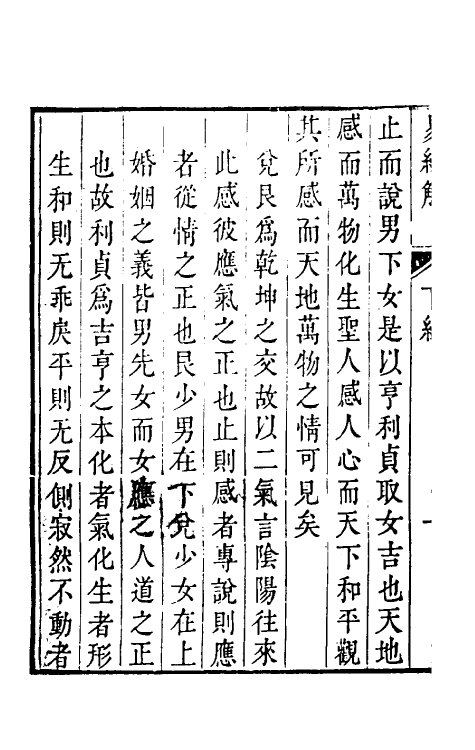 易經解　下經
止而說男下女是以亨利貞取女吉也天地
感而萬物化生聖人感人心而天下和平觀
其所感而天地萬物之情可見矣
兌艮爲乾坤之交故以二氣言陰陽往來
此感彼應氣之正也止則感者專說則應
者從情之正也艮少男在下兌少女在上
婚姻之義皆男先女而女應之人道之正
也故利貞爲吉亨之本化者氣化生者形
生和則无乖戾平則无反側寂然不動者